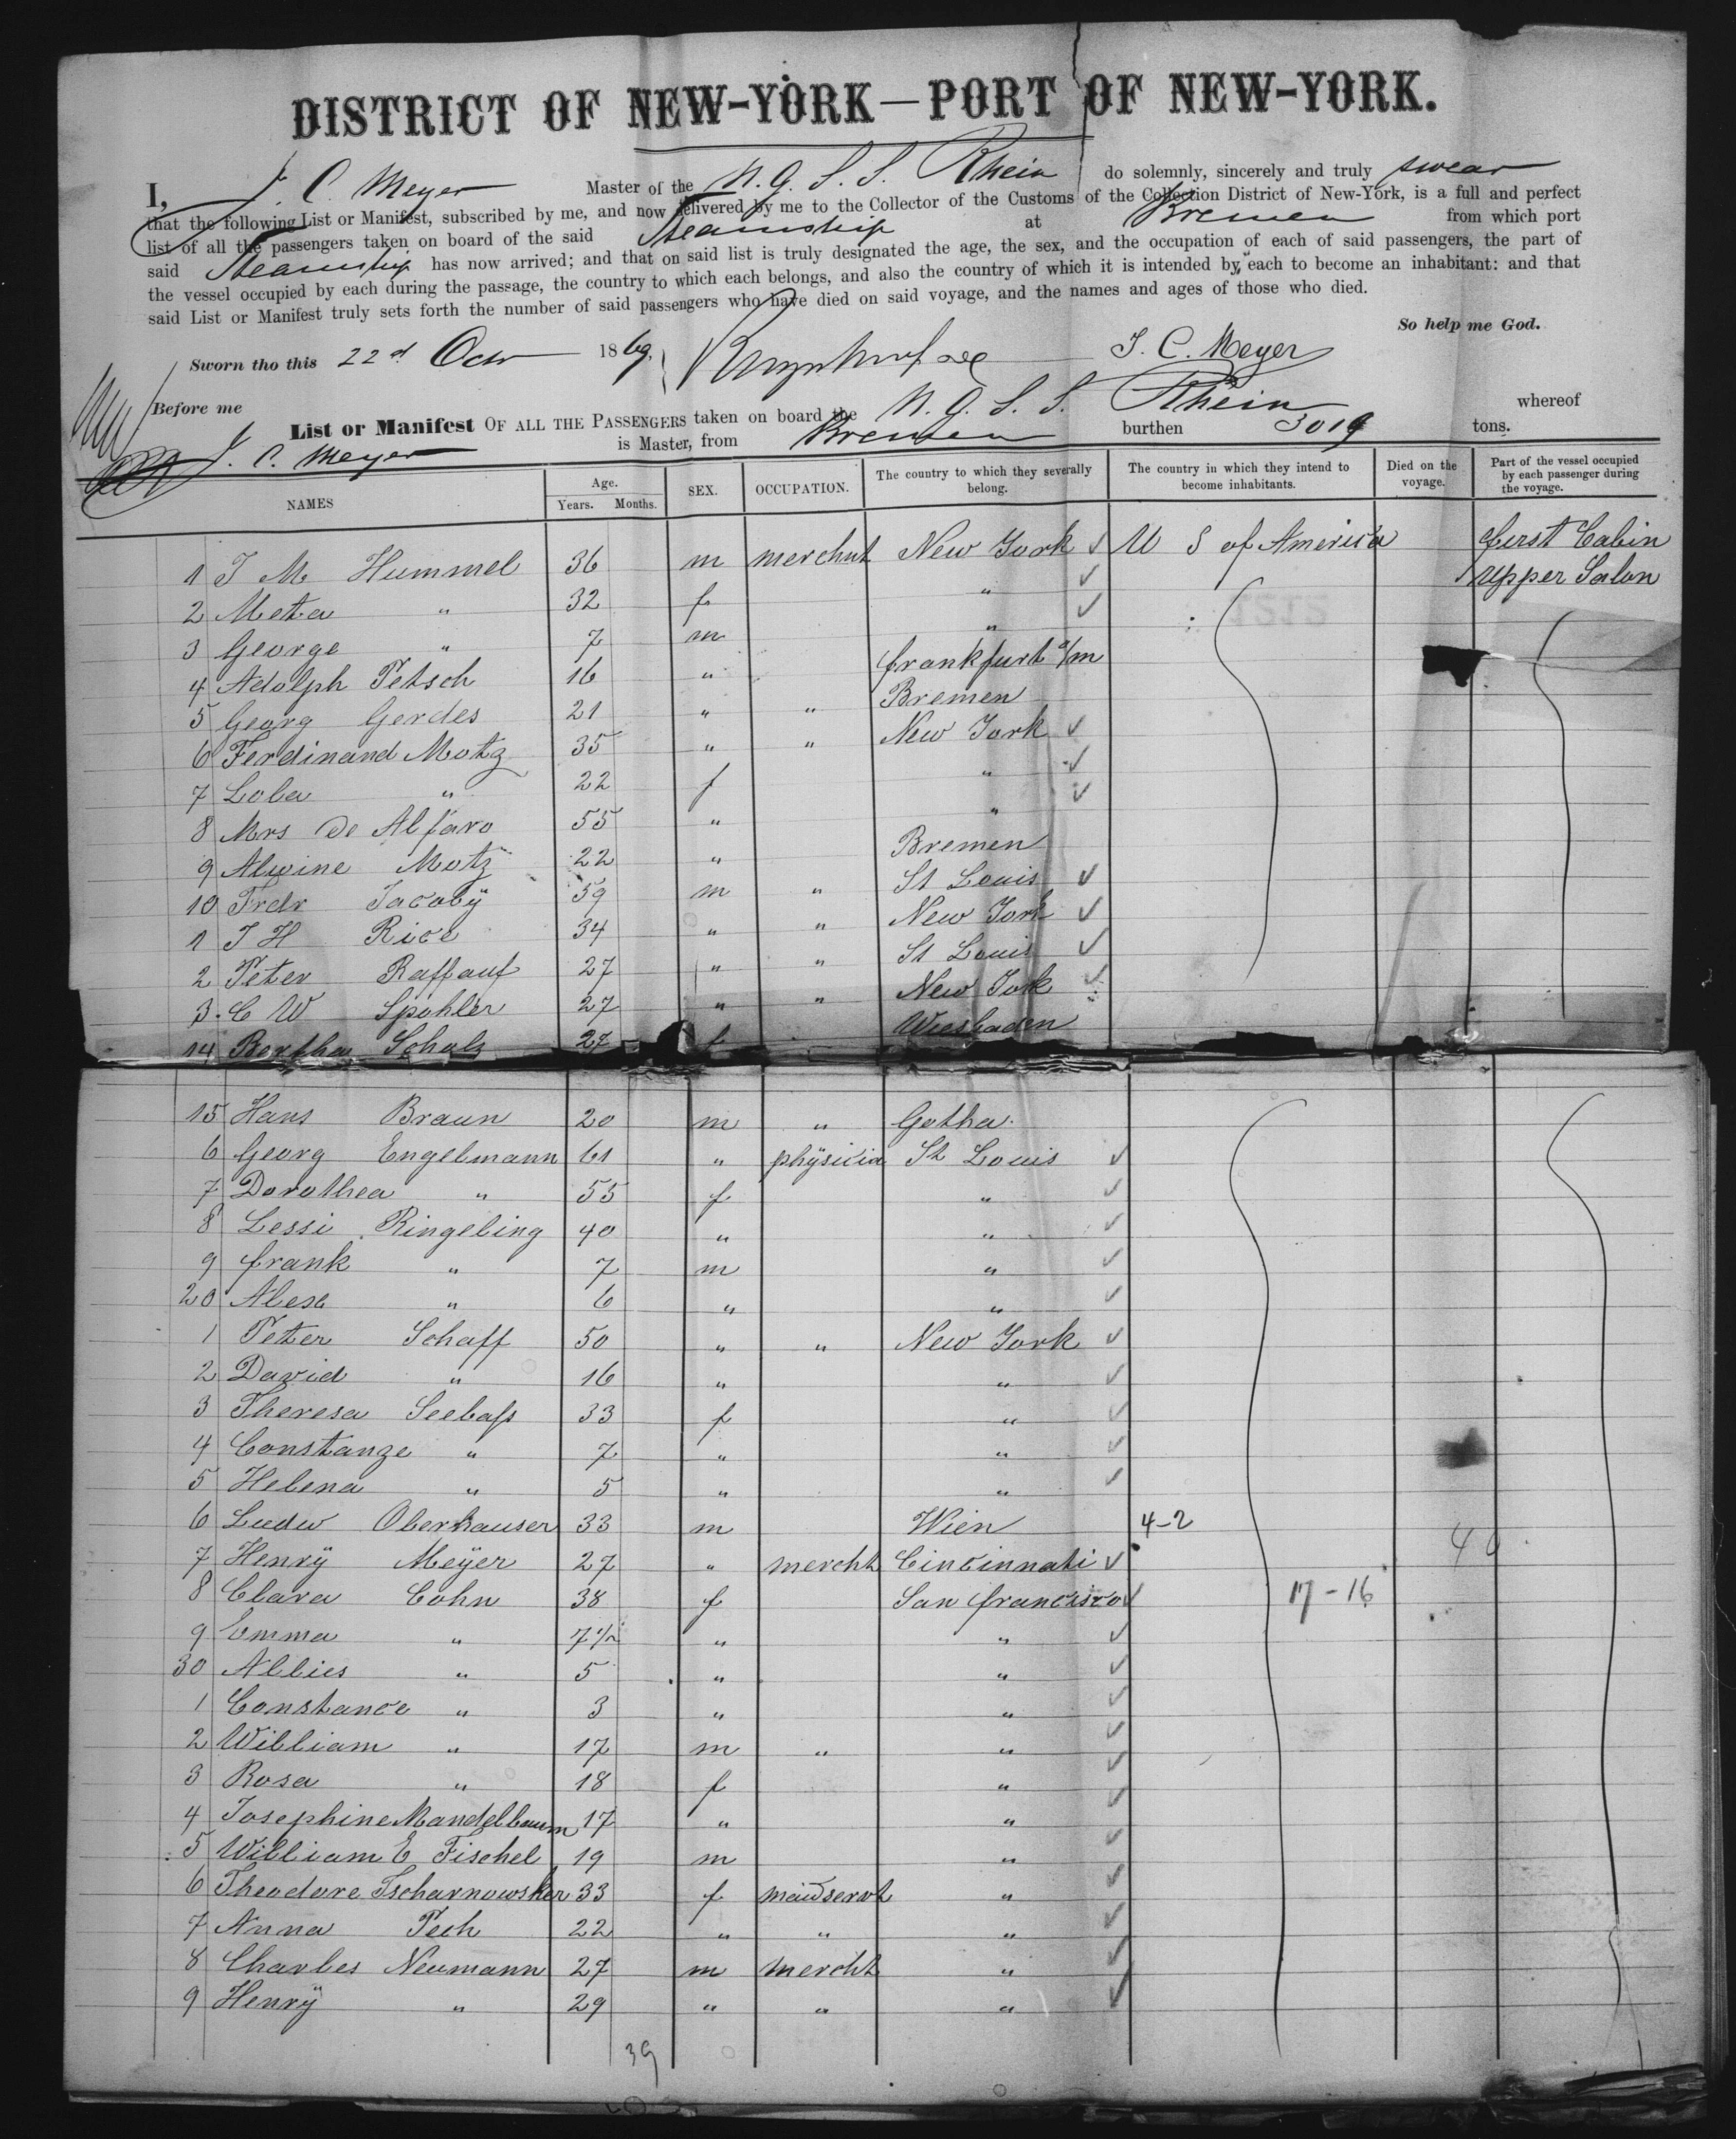 DISTRICT OF NEW-YORK—PORT OF NEW-YORK.
I, J. C. Meyer Master of the N. G. S. S. Rhein do solemnly, sincerely and truly swear
that the following List or Manifest, subscribed by me, and now delivered by me to the Collector of the Customs of the Collection District of New-York, is a full and perfect
list of all the passengers taken on board of the said Steamship at Bremen from which port
said Steamship has now arrived; and that on said list is truly designated the age, the sex, and the occupation of each of said passengers, the part of
the vessel occupied by each during the passage, the country to which each belongs, and also the country of which it is intended by each to become an inhabitant: and that
said List or Manifest truly sets forth the number of said passengers who have died on said voyage, and the names and ages of those who died.
So help me God.
Sworn tho this 22d Octr 1869, J. C. Meyer
Before me
List or Manifest OF ALL THE PASSENGERS taken on board the N. G. S. S. Rhein whereof
J. C. Meyer is Master, from Bremen burthen 3019 tons.
NAMES Age. Years. Months. SEX. OCCUPATION. The country to which they severally belong. The country in which they intend to become inhabitants. Died on the voyage. Part of the vessel occupied by each passenger during the voyage.
1 J M Hummel 36 m merchnt New York ✓ U S of America first Cabin
upper Salon
2 Meta " 32 f " ✓
3 George " 7 m " ✓
4 Adolph Petsch 16 " frankfurt a/m
5 Georg Gerdes 21 " " Bremen
6 Ferdinand Motz 35 " " New York ✓
7 Lola " 22 f " ✓
8 Mrs De Alfaro 55 " " ✓
9 Alwine Motz 22 " Bremen
10 Frdr Jacobÿ 59 m " St Louis ✓
1 J H Rice 34 " " New York ✓
2 Peter Raffauf 27 " " St Louis ✓
3 C W Spohler 27 " " New York ✓
14 Bertha Scholz 27 f Wiesbaden
15 Hans Braun 20 m " Gotha
6 Georg Engelmann 61 " phÿsicia St Louis ✓
7 Dorothea " 55 f " ✓
8 Lessi Ringeling 40 " " ✓
9 frank " 7 m " ✓
20 Alex " 6 " " ✓
1 Peter Schaff 50 " " New York ✓
2 David " 16 " " ✓
3 Theresa Seebaſs 33 f " ✓
4 Constanze " 7 " " ✓
5 Helena " 5 " " ✓
6 Ludw Oberhauser 33 m Wien 4-2
7 Henrÿ Meÿer 27 " mercht Cincinnati ✓ 40
8 Clara Cohn 38 f San francisco ✓ 17-16
9 Emma " 7 1/2 " " ✓
30 Allies " 5 " " ✓
1 Constance " 3 " " ✓
2 William " 17 m " " ✓
3 Rosa " 18 f " ✓
4 Josephine Mandelbaum 17 " " ✓
5 William E Fischel 19 m " ✓
6 Theodore Tscharnowsker 33 f maidservt " ✓
7 Anna Pech 22 " " " ✓
8 Charles Neumann 27 m mercht " ✓
9 Henrÿ " 29 " " " ✓
39